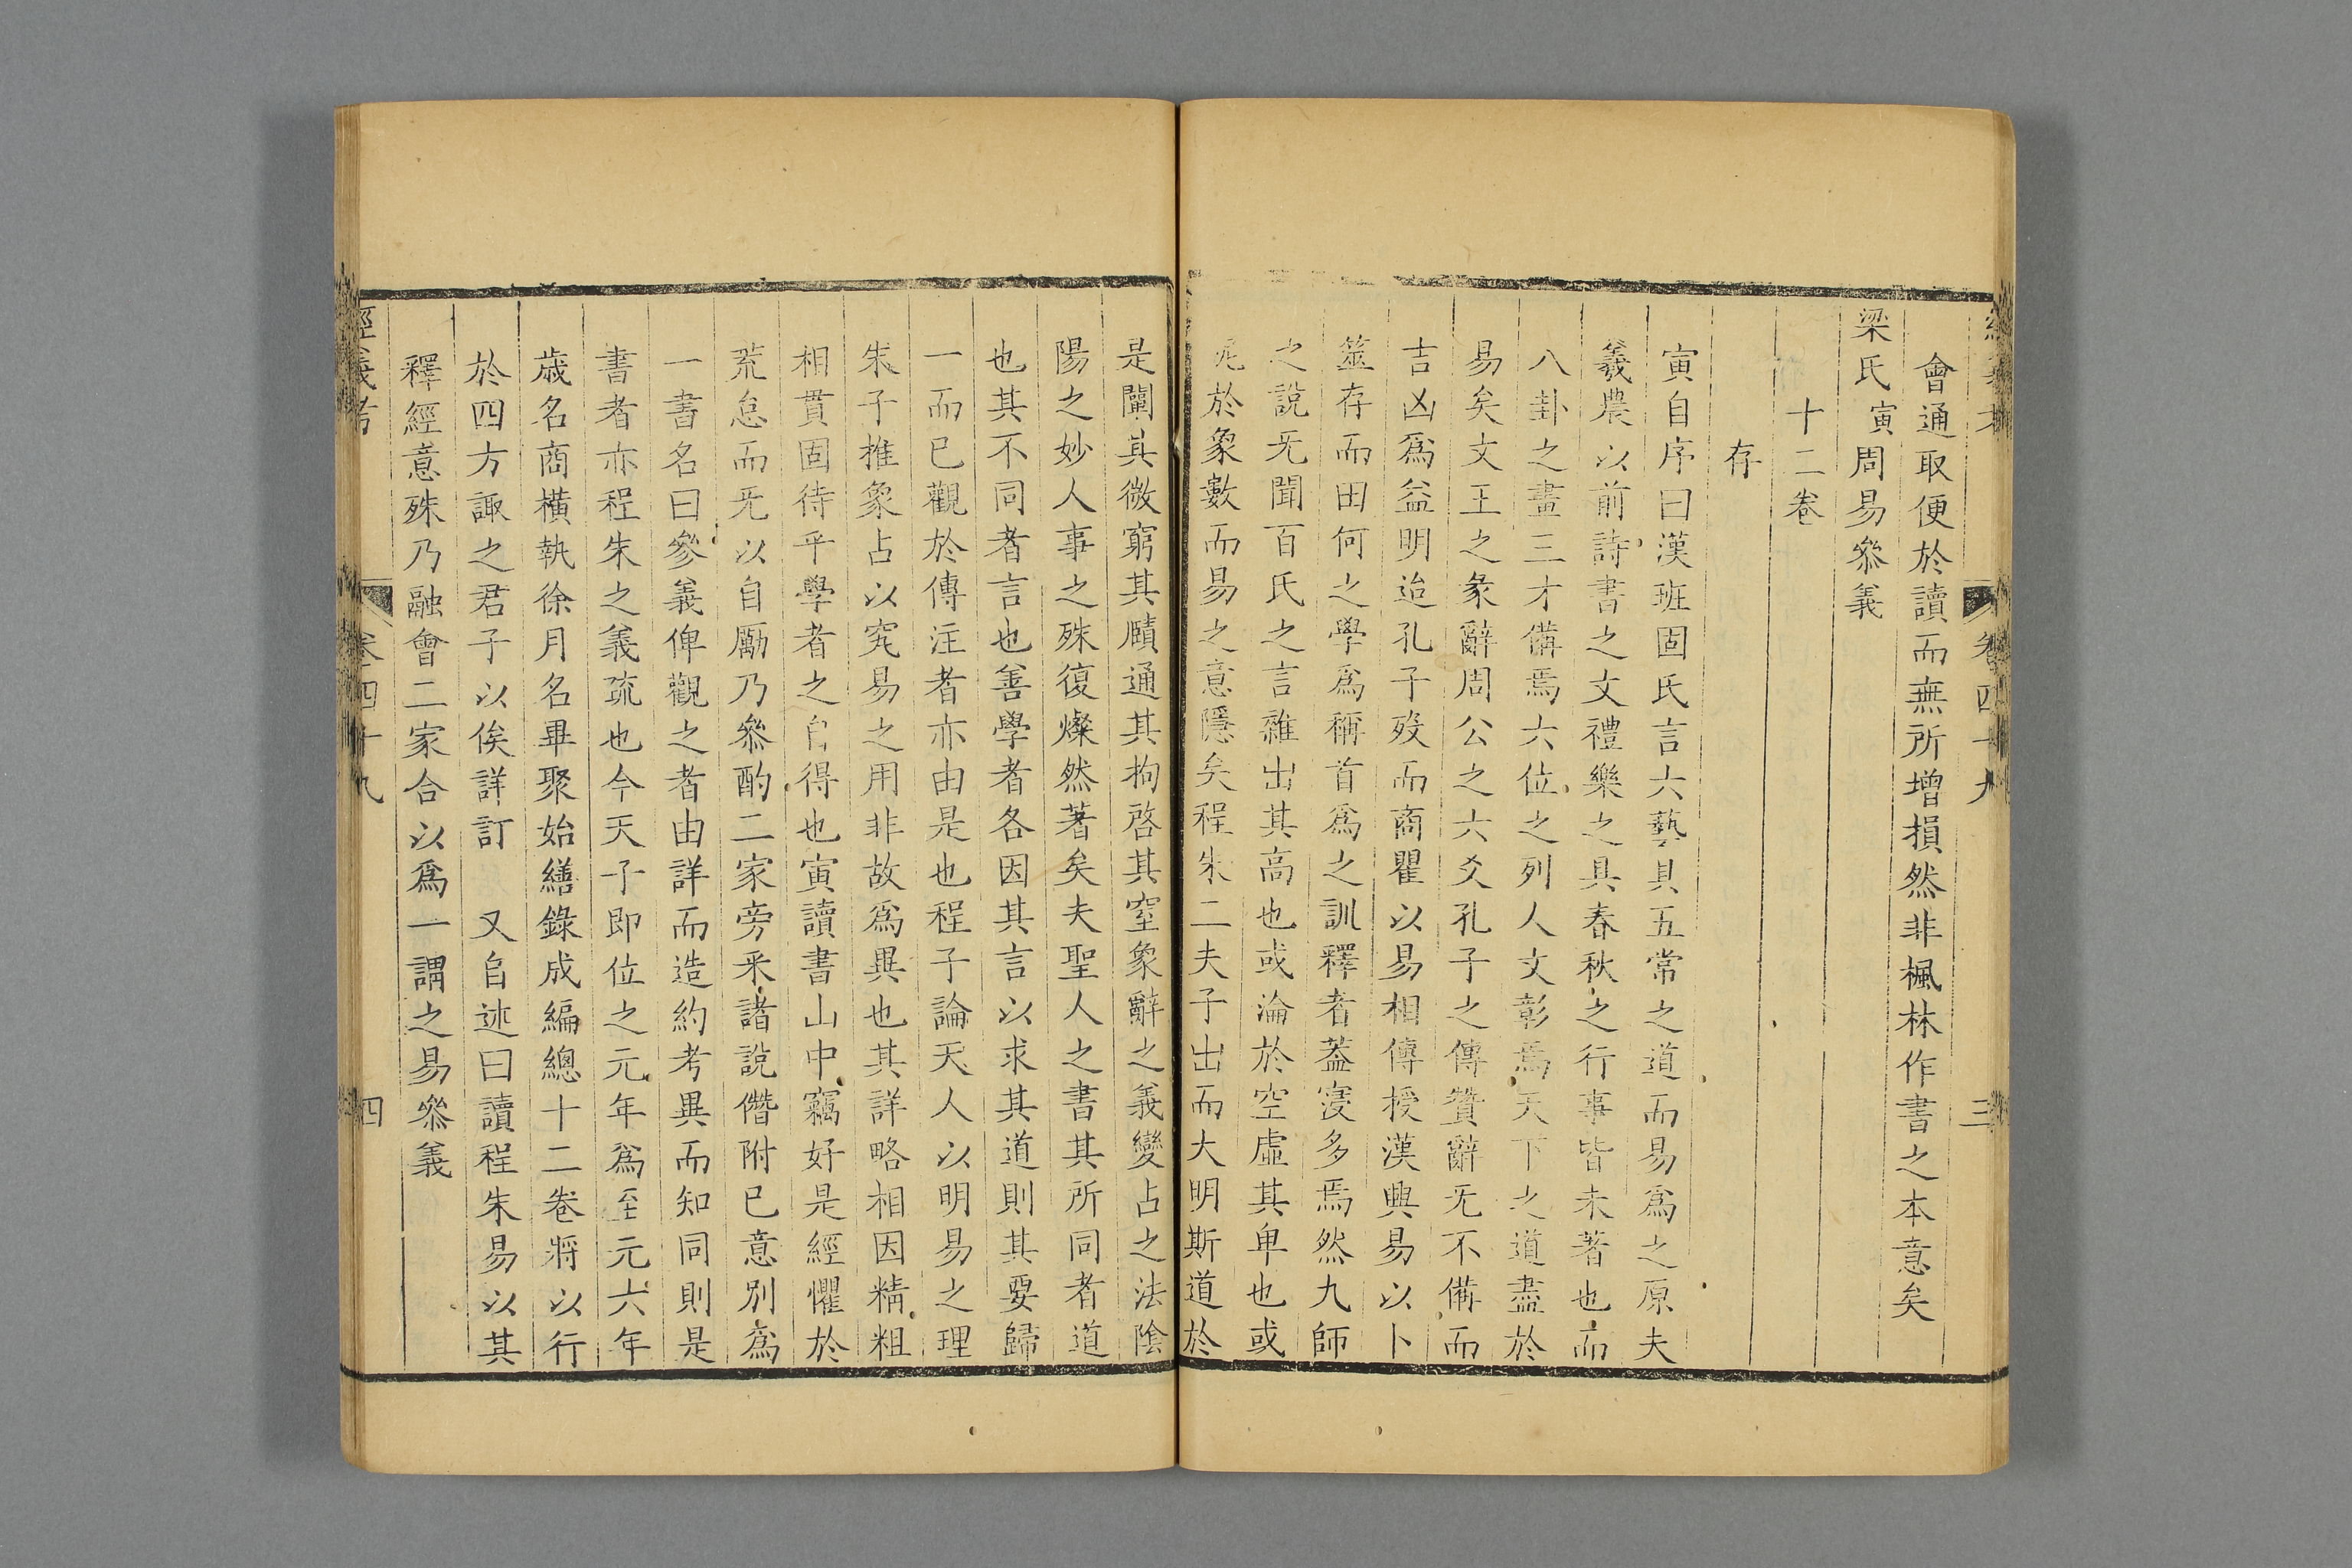 經義考 卷四十九 三
會通取便於讀而無所增損然非楓林作書之本意矣
梁氏寅周易叅義
十二卷
存
寅自序曰漢班固氏言六藝具五常之道而易爲之原夫
羲農以前詩書之文禮樂之具春秋之行事皆未著也而
八卦之畫三才備焉六位之列人文彰焉天下之道盡於
易矣文王之彖辭周公之六爻孔子之傳贊辭无不備而
吉凶爲益明迨孔子歿而商瞿以易相傳授漢興易以卜
筮存而田何之學爲稱首爲之訓釋者蓋寖多焉然九師
之說无聞百氏之言雜出其高也或淪於空虛其卑也或
泥於象數而易之意隱矣程朱二夫子出而大明斯道於
是闡其微窮其賾通其拘啓其窒象辭之義變占之法陰
陽之妙人事之殊復燦然著矣夫聖人之書其所同者道
也其不同者言也善學者各因其言以求其道則其要歸
一而已觀於傳注者亦由是也程子論天人以明易之理
朱子推象占以究易之用非故爲異也其詳略相因精粗
相貫固待乎學者之自得也寅讀書山中竊好是經懼於
荒怠而无以自勵乃叅酌二家旁采諸說僭附已意別爲
一書名曰參義俾觀之者由詳而造約考異而知同則是
書者亦程朱之義疏也今天子即位之元年爲至元六年
歳名商橫執徐月名畢聚始繕錄成編總十二卷將以行
於四方諏之君子以俟詳訂 又自述曰讀程朱易以其
釋經意殊乃融會二家合以爲一謂之易叅義
經義考 卷四十九 四